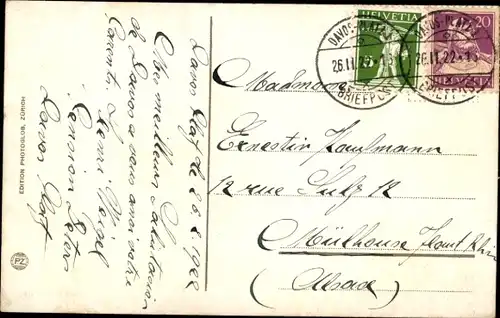 Davos Platz le 26 2 1922
Mes meilleurs salutations
de Davos a vous ainsi votre
Parents. Henri
Pension Peters
Davos Platz
EDITION PHOTOGLOB, ZÜRICH
PZ
HELVETIA
20
HELVETIA
DAVOS-PLATZ
26.II.22
BRIEFPOST
DAVOS-PLATZ
26.II.22
BRIEFPOST
Madame
Ernestin Kaufmann
12 rue Sulz 12
Mülhouse Haut Rhin
(Alsace)